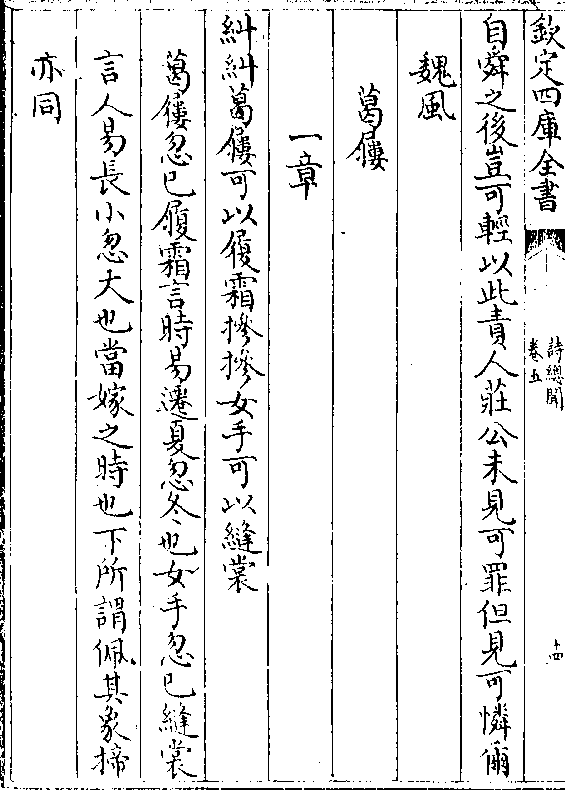 欽定四庫全書
詩總聞
卷五
十四
自舜之後豈可輕以此責人莊公未見可罪但見可憐爾
魏風
葛屨
一章
糾糾葛屨可以履霜摻摻女手可以縫裳
葛屨忽已履霜言時易遷夏忽冬也女手忽已縫裳
言人易長小忽大也當嫁之時也下所謂佩其象揥
亦同